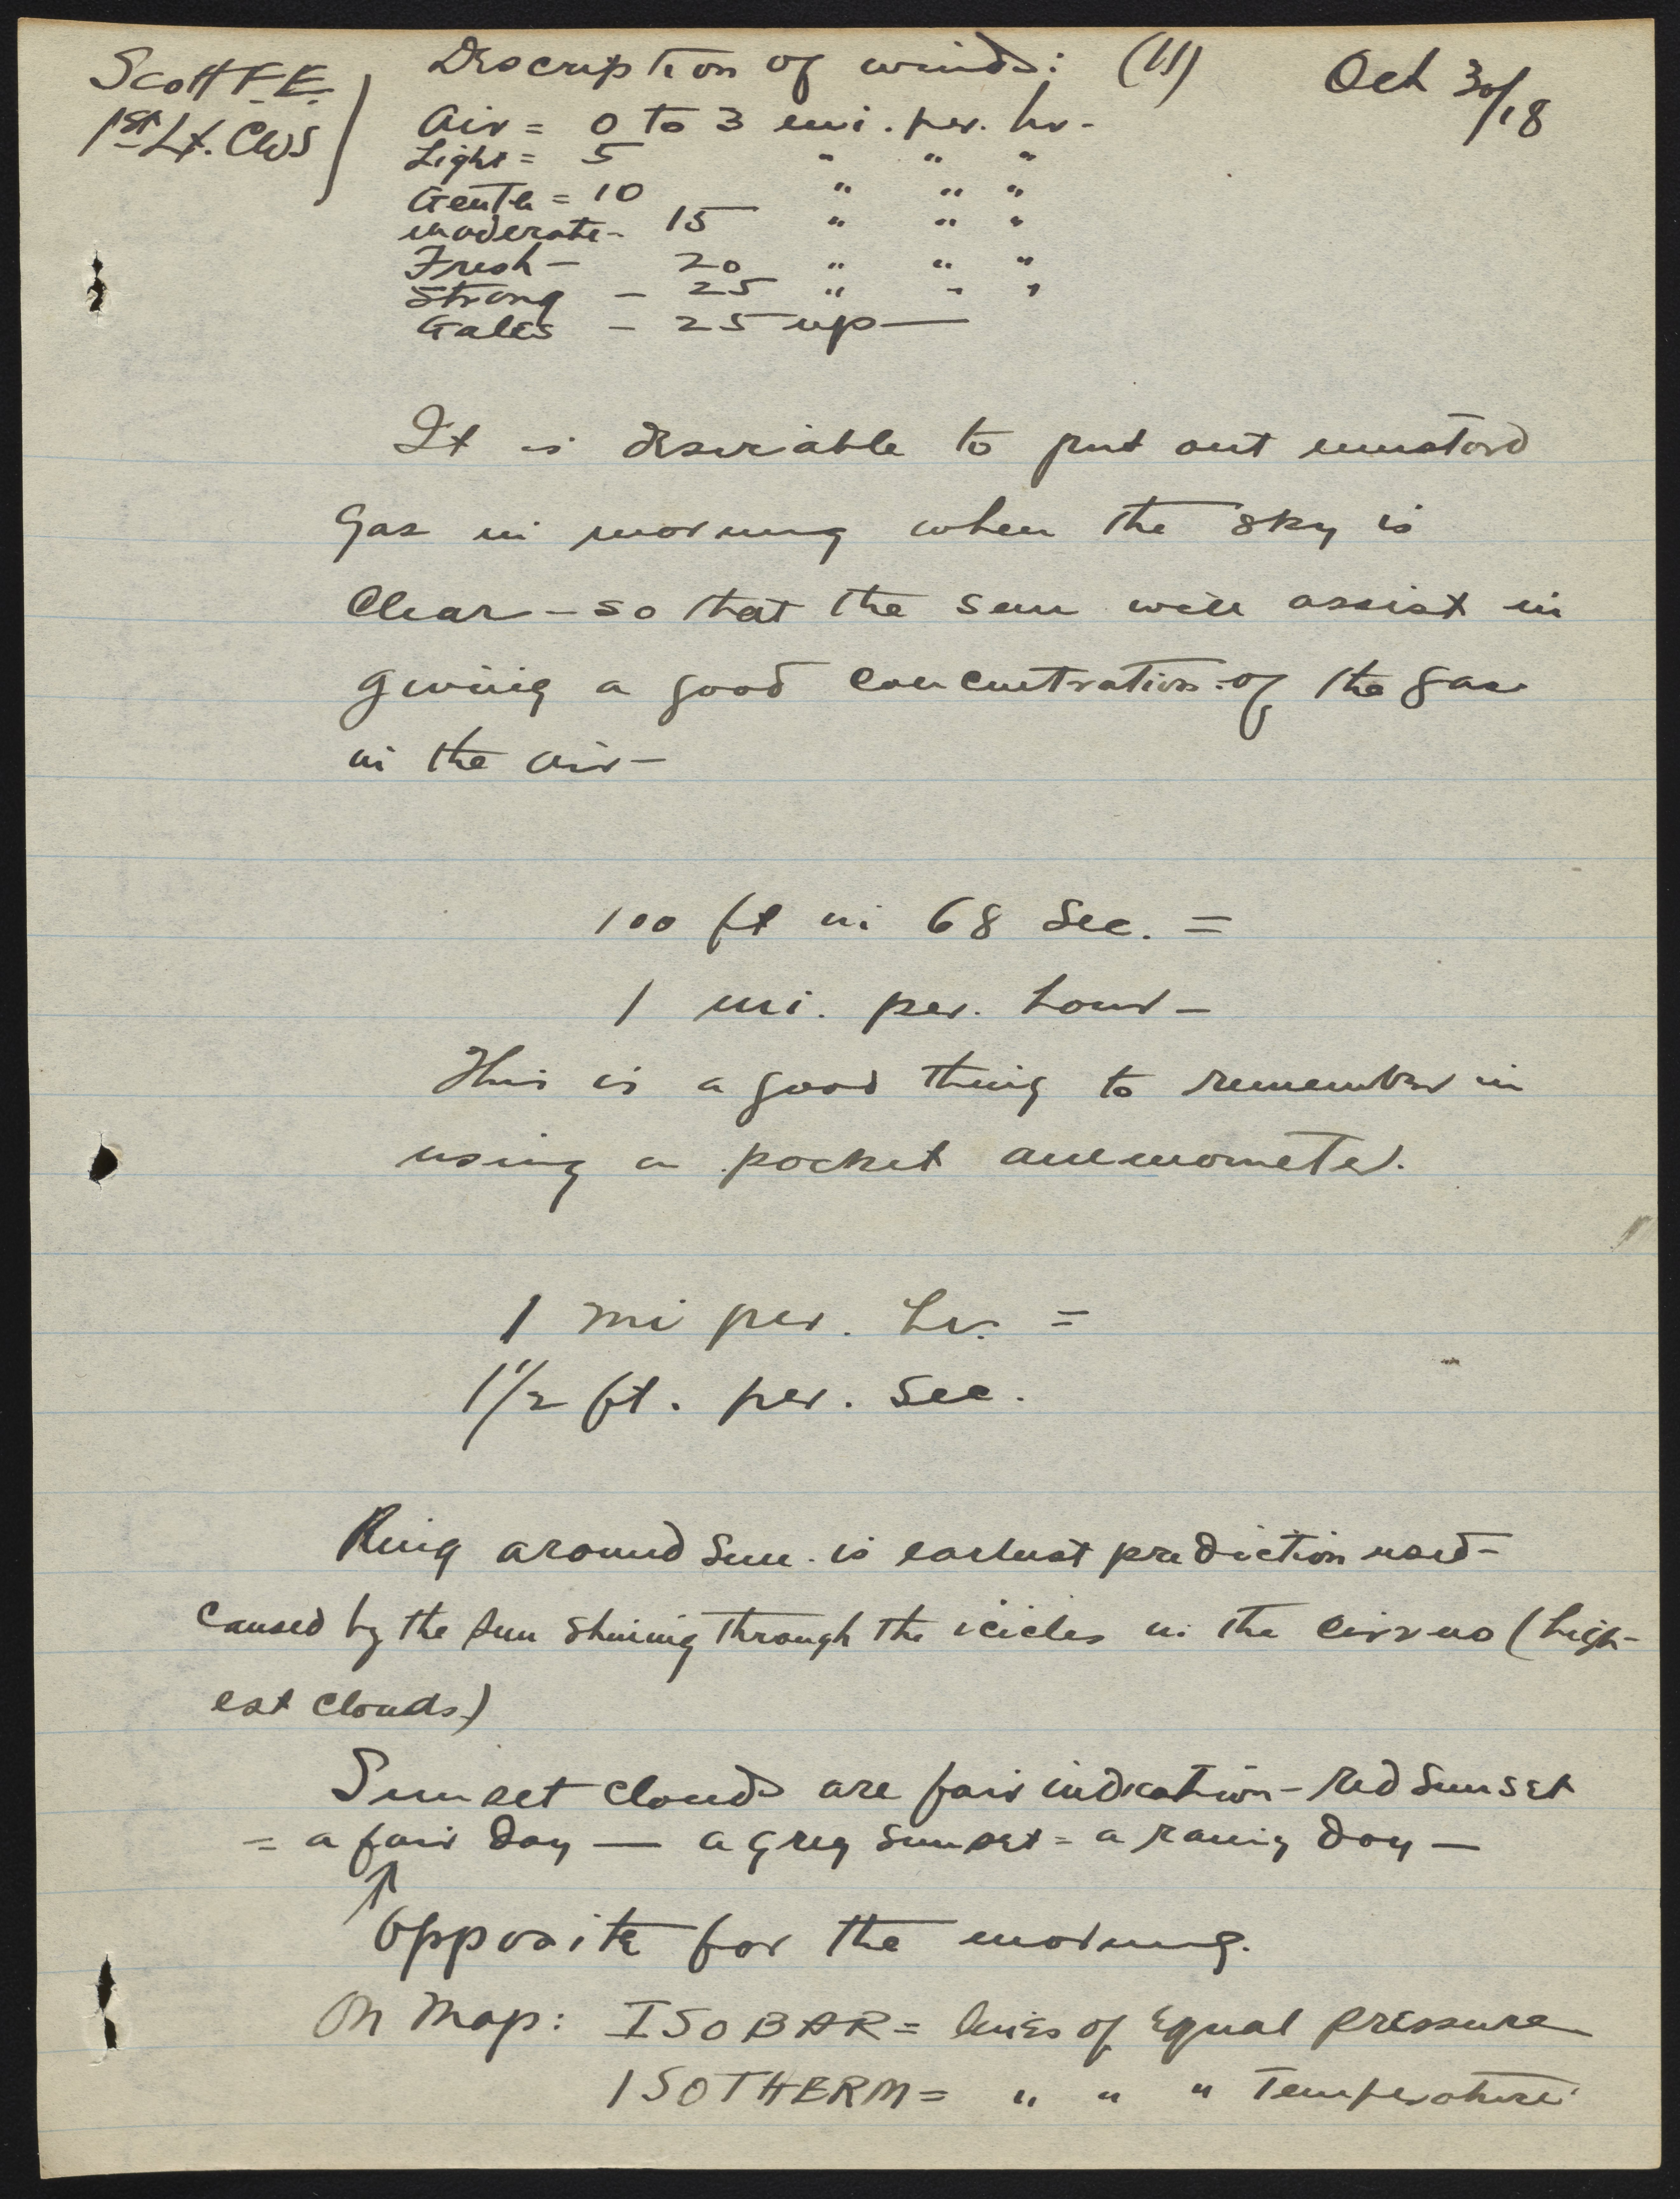 Scott F. E.
1st Lt. CWS
Description of winds: (11) Oct 30/18
Air = 0 to 3 mi. per. hr-
Light = 5 " " "
Gentle = 10 " " "
moderate - 15 " " "
Fresh - 20 " " "
Strong - 25 " " "
Gales - 25 up —
It is desirable to put out mustard
gas in morning when the sky is
Clear - so that the sun will assist in
giving a good concentration of the gas
in the air -
100 ft in 68 Sec. =
1 mi. per. hour -
This is a good thing to remember in
using a pocket anemometer.
1 mi per. hr. =
1 1/2 ft. per. Sec.
Ring around Sun is earliest prediction used -
caused by the sun shining through the icicles in the cirrus (high-
est clouds)
Sunset clouds are fair indication - Red Sunset
= a fair day — a grey sunset = a rainy day —
↑
Opposite for the morning.
On Map: ISOBAR = lines of Equal Pressure
ISOTHERM = " " " Temperature